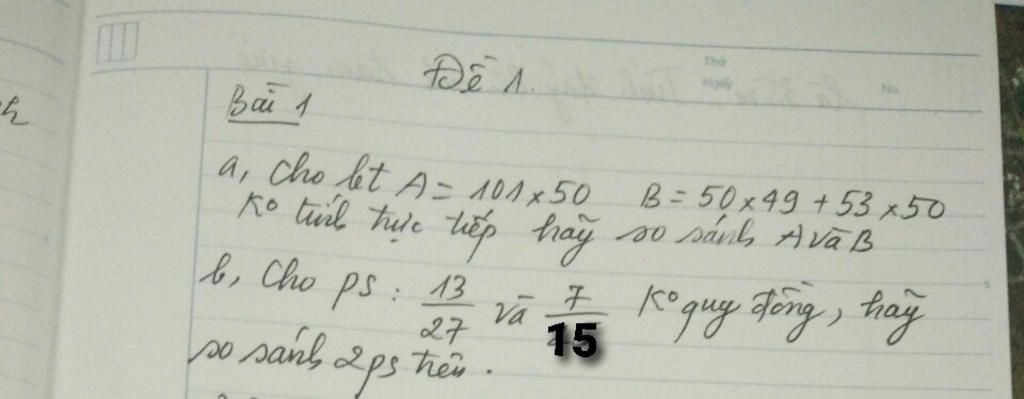 Thứ
Ngày
No
Đề 1.
Bài 1
a, Cho bt A = 101 x 50 B = 50 x 49 + 53 x 50
Kº tính trực tiếp hãy so sánh A và B
b, Cho ps : 13/27 và 7/15 Kº quy đồng, hãy
so sánh 2 ps trên .